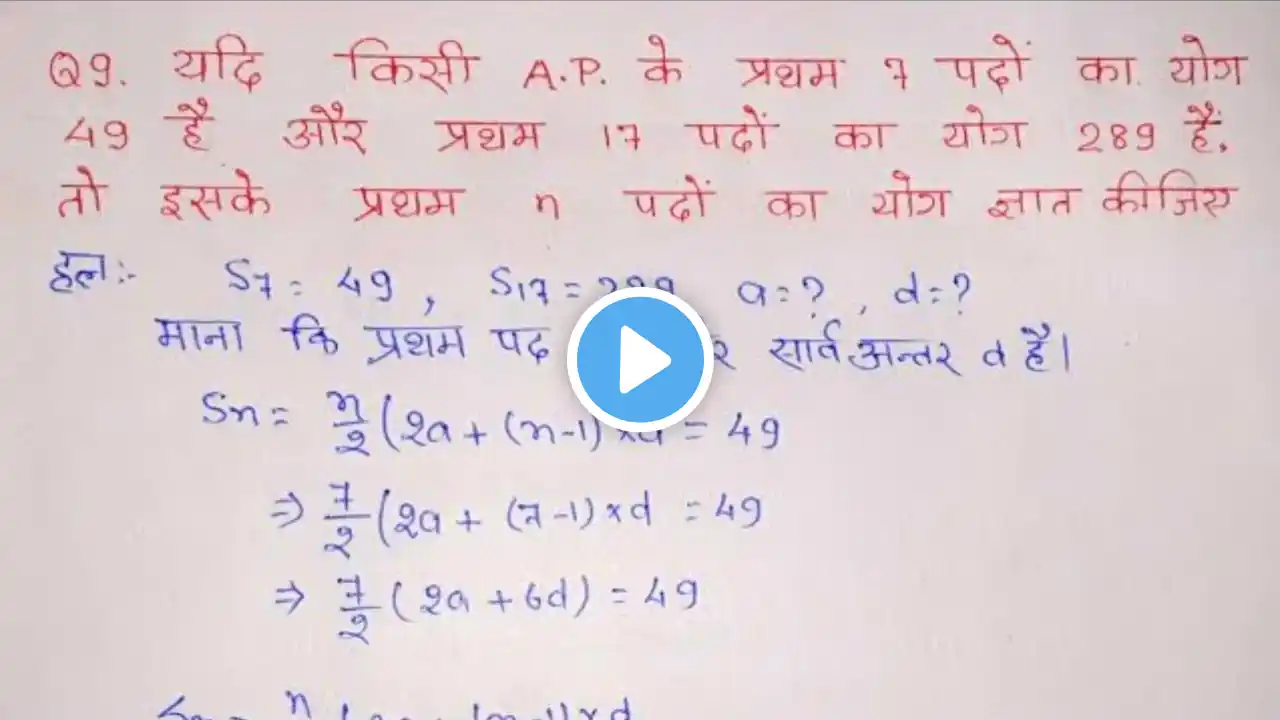 Q9. यदि किसी A.P. के प्रथम 7 पदों का योग
49 है और प्रथम 17 पदों का योग 289 हैं,
तो इसके प्रथम n पदों का योग ज्ञात कीजिए
हल:- S7 = 49, S17 = 289 a=?, d=?
माना कि प्रथम पद सार्व अन्तर d है।
Sn = n/2 (2a + (n-1) x d = 49
⇒ 7/2 (2a + (7-1) x d = 49
⇒ 7/2 (2a + 6d) = 49